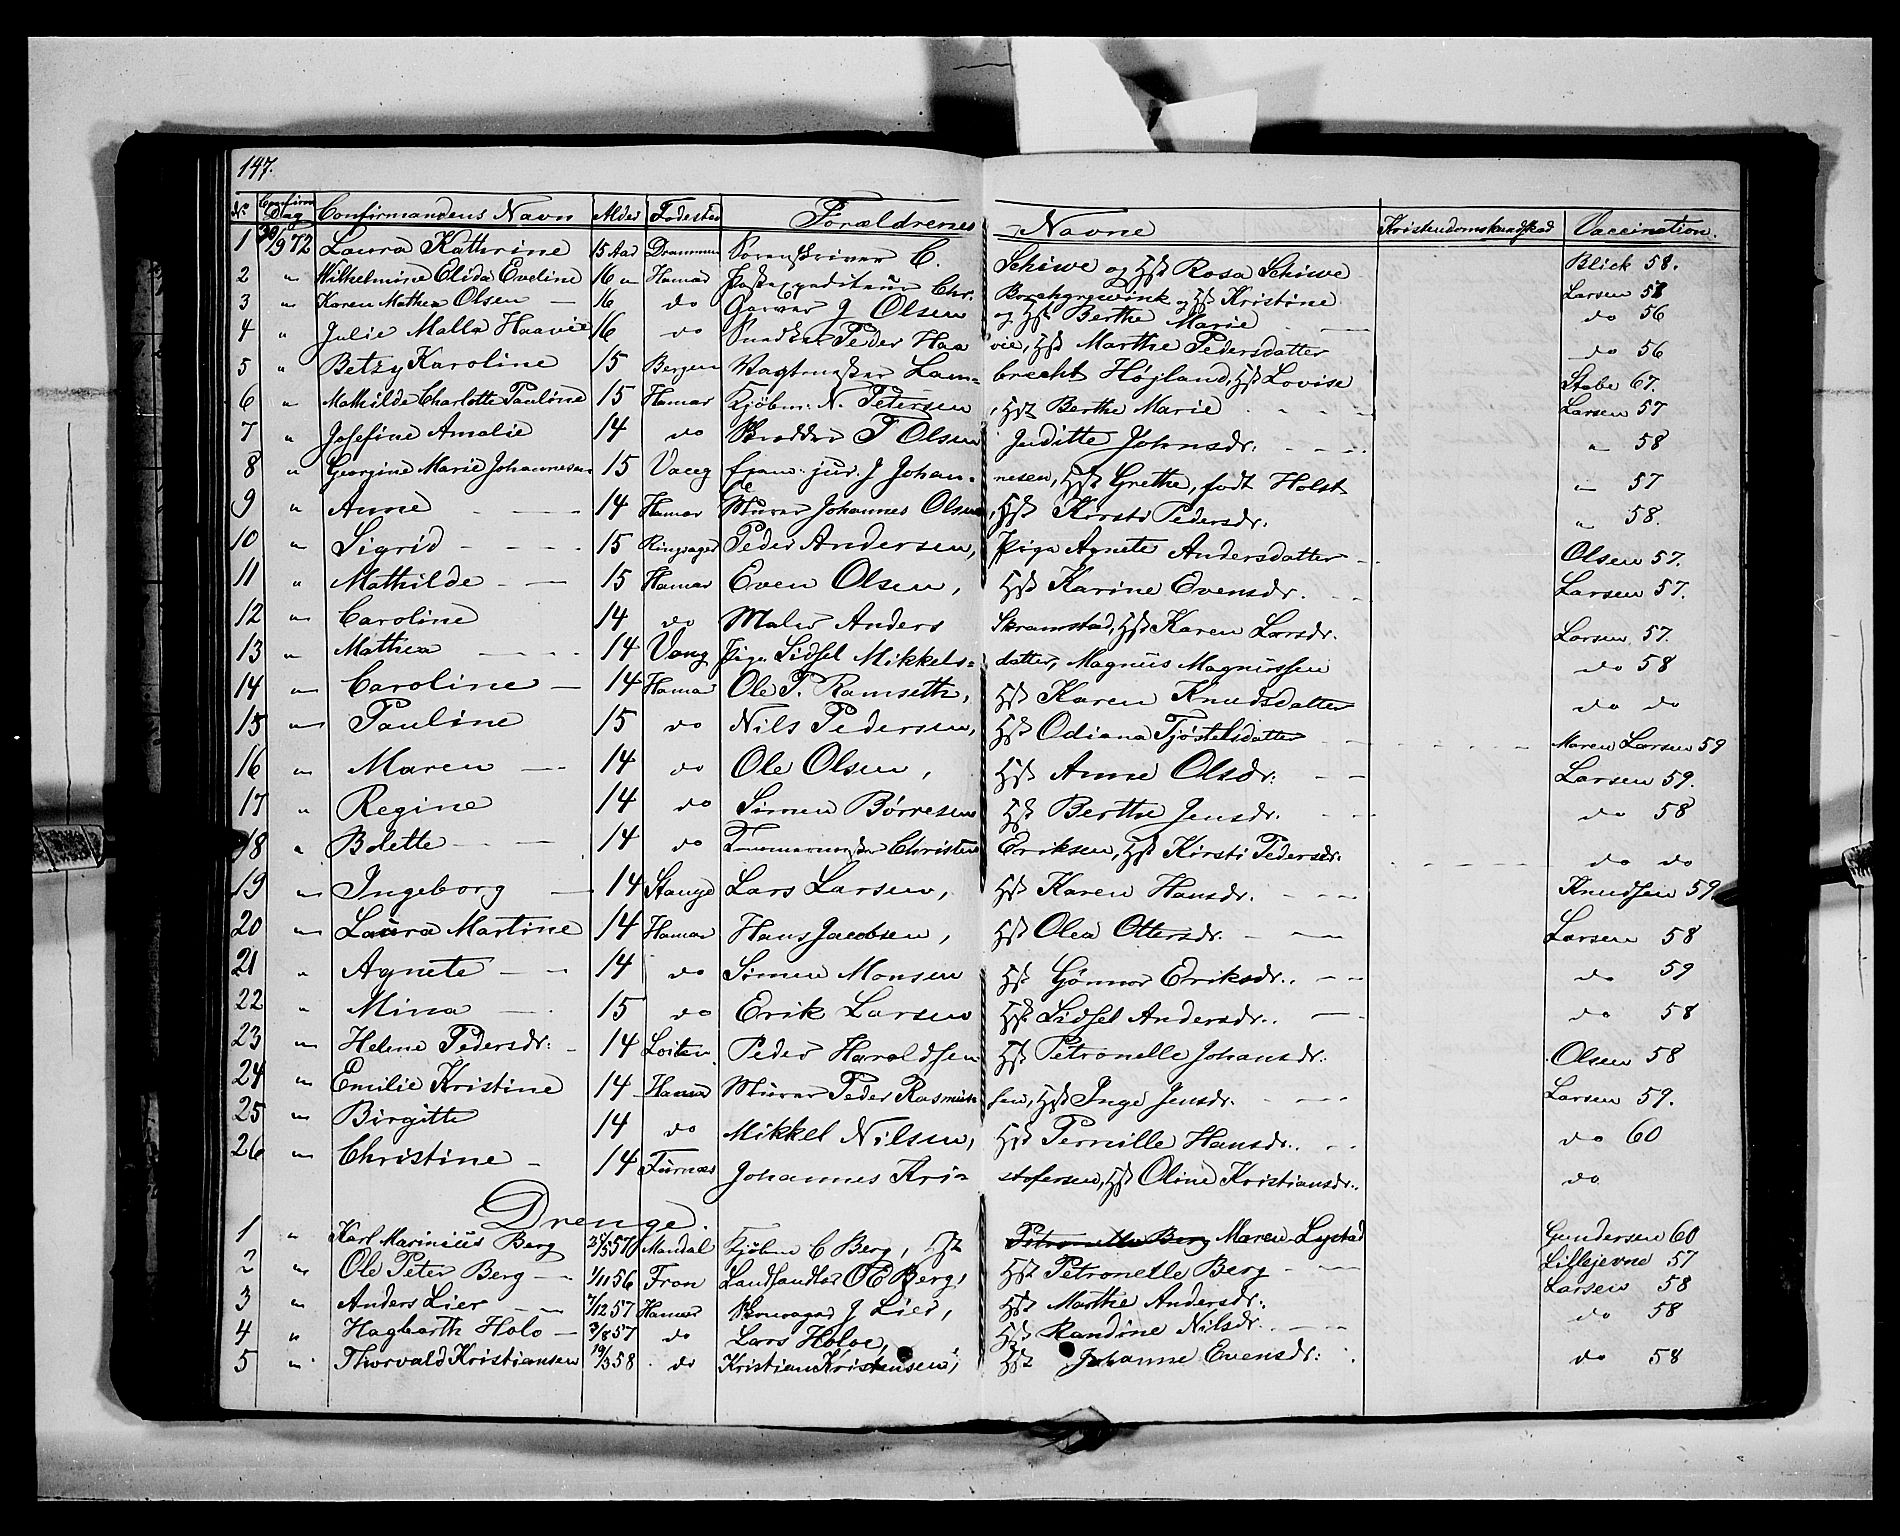 147.
No Confirm. Dag Confirmandens Navn Alder Fødested Forældrenes Navne Kristendomskundskab Vaccination.
1 30/9 72 Laura Kathrine 15 Aar Drammen Sorenskriver C. Schiwe og Hst Rosa Schiwe Blick 58.
2 " Wilhelmine Elida Eveline 16 " Hamar Postexpeditør Chr. Borchgrevink og Hst Kristine Larsen 58
3 " Karen Mathea Olsen — 16 do Garver J Olsen og Hst Berthe Marie do 56
4 " Julie Malla Haavie 16 do Snedker Peder Haavie, Hst Marthe Pedersdatter do 56
5 " Betzy Karoline 15 Bergen Vagtmester Lambrecht Højland, Hst Lovise Stabe 67.
6 " Mathilde Charlotte Pauline 15 Hamar Kjøbm: N. Petersen, Hst Berthe Marie Larsen 57
7 " Josefine Amalie 14 do Skrædder T Olsen Juditte Johnsdr. " 58
8 " Georgine Marie Johannesen 15 Vang exam. jur. J Johannesen, Hst Grethe, født Holst " 57
9 " Anne 14 Hamar Murer Johannes Olsen, Hst Kirsti Pedersdr. " 58.
10 " Sigrid 15 Ringsager Peder Andersen, Pige Agnete Andersdatter Olsen 57.
11 " Mathilde 15 Hamar Even Olsen, Hst Karine Evensdr. Larsen 57.
12 " Caroline 14 do Maler Anders Skramstad, Hst Karen Larsdr. Larsen 57.
13 " Mathea 14 Vang Pige Sidsel Mikkelsdatter, Magnus Magnussen do 58
14 " Caroline — 14 Hamar Ole P. Ramseth, Hst Karen Knudsdatter do do
15 " Pauline 15 do Nils Pedersen, Hst Odiana Tjøstelsdatter Maren Larsen 59
16 " Maren 14 do Ole Olsen, Hst Anne Olsdr. Larsen 59.
17 " Regine 14 do Simen Børresen Hst Berthe Jensdr. do 58
18 " Bolette 14 do Tømmermester Christen Eriksen, Hst Kirsti Pedersdr. do do
19 " Ingeborg 14 Stange Lars Larsen, Hst Karen Hansdr. Knudsen 59
20 " Laura Martine 14 Hamar Hans Jacobsen, Hst Olea Ottersdr. Larsen 58
21 " Agnete 14 do Simen Monsen Hst Gønnor Eriksdr. do 59
22 " Mina 15 do Erik Larsen Hst Sidsel Andersdr. do 58
23 " Helene Pedersdr: 14 Løiten Peder Haraldsen Hst Petronelle Johansdr. Olsen 58
24 " Emilie Kristine 14 Hamar Murer Peder Rasmussen, Hst Inge Jensdr. Larsen 59.
25 " Birgitte 14 do Mikkel Nilsen, Hst Pernille Hansdr. do 60
26 " Christine 14 Furnæs Johannes Kristofersen, Hst Oline Kristiansdr. do
Drenge.
1 " Karl Marinius Berg 57 Mandal Kjøbm C Berg, Hst Petronelle Berg Maren Lystad Gundersen 60
2 " Ole Peter Berg 1/11 56 Fron Landhandler O E Berg, Hst Petronelle Berg Lillejevne 57
3 " Anders Lier 7/12 57 Hamar Skomager J Lier, Hst Marthe Andersdr. Larsen 58
4 " Hagbarth Holo 3/8 57 do Lars Holoe, Hst Randine Nilsdr. do 58
5 " Thorvald Kristiansen 19/3 58 do Kristian Kristensen, Hst Johanne Evensdr: do 58